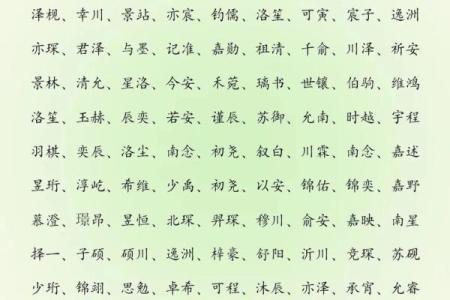 泽枧、幸川、景站、亦宸、钧儒、洛笙、可寅、宸子、逸洲
亦琛、君泽、与墨、记准、嘉勋、祖清、千俞、川泽、祈安
景林、清允、星洛、今安、禾菀、璃书、世镶、伯驹、维鸿
洛笙、玉赫、辰奕、若安、谨辰、苏御、允南、时越、宇程
羽棋、奕辰、洛尘、南念、初尧、叙白、川霖、南念、嘉述
昱珩、淳屹、希维、少禹、初尧、以安、锦佑、锦奕、嘉野
慕澄、璟昂、昱恒、北琛、羿琛、穆川、俞安、嘉映、南星
择一、子硕、硕川、逸洲、梓豪、舒阳、沂川、竞琛、苏砚
少珩、锦翊、思勉、卓希、可程、沐辰、亦泽、承宵、允睿